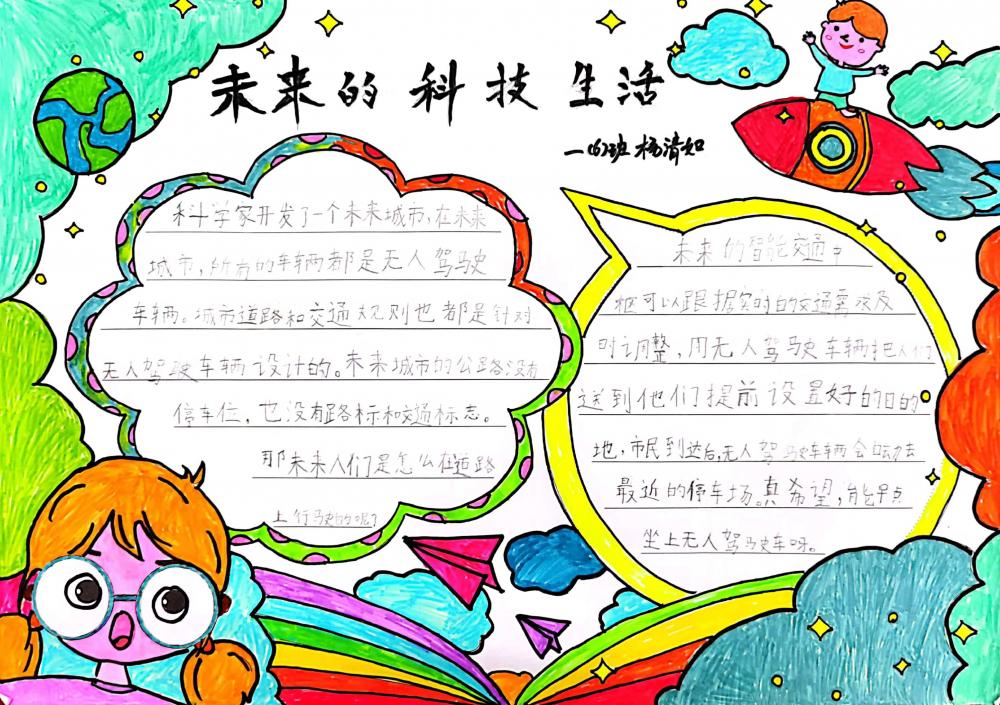 未来的科技生活
一(6)班 杨清如
科学家开发了一个未来城市，在未来
城市，所有的车辆都是无人驾驶
车辆。城市道路和交通规则也都是针对
无人驾驶车辆设计的。未来城市的公路没有
停车位，也没有路标和交通标志。
那未来人们是怎么在道路
上行驶的呢？
未来的智能交通中
枢可以跟据实时的交通需求及
时调整，用无人驾驶车辆把人们
送到他们提前设置好的目的
地，市民到达后，无人驾驶车辆会自动去
最近的停车场。真希望，能早点
坐上无人驾驶车呀。